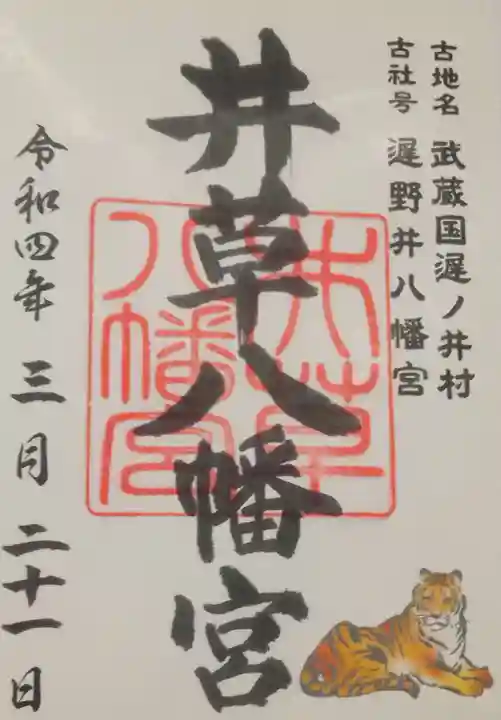 古地名 武蔵国遅ノ井村
古社号 遅野井八幡宮
井草八幡宮
井草
八幡宮
令和四年 三月 二十一日